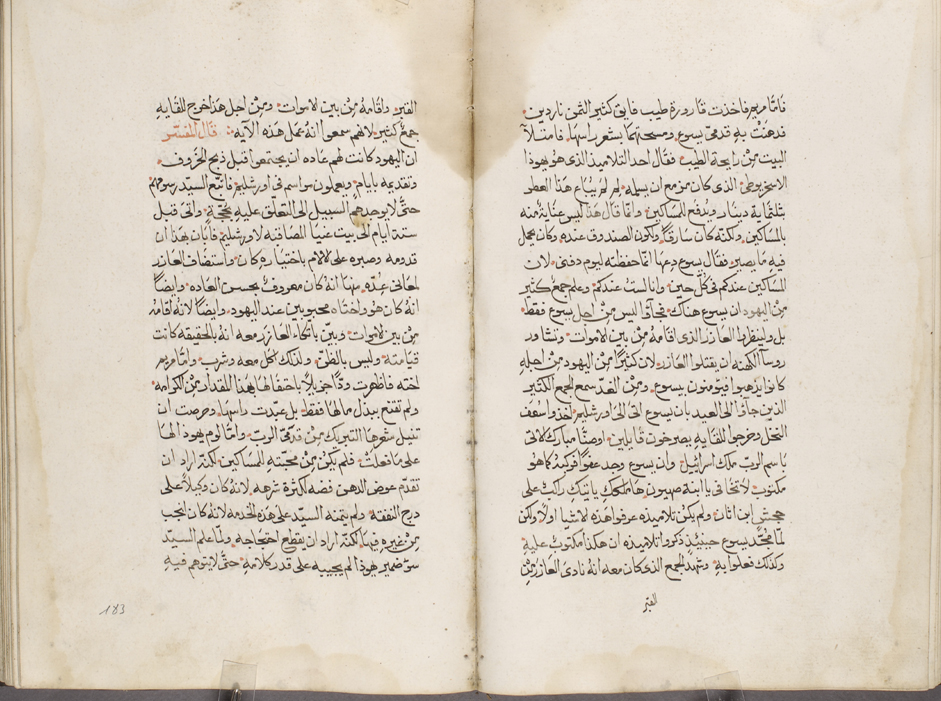 فامّا مريم فاخذت قارورة طيب فايق كثير الثمن ناردين
فدهنت به قدمَي يسوع ومسحتهما بشعر راسها فامتلأ
البيت من رايحة الطيب فقال احد التلاميذ الذي هو يهوذا
الاسخريوطي الذي كان مزمع ان يسلمه لِمَ لم يُباع هذا العطر
بثلثماية دينار ويُدفع للمساكين وانما قال هذا ليس عناية منه
بالمساكين ولكنه كان سارقًا ولكون الصندوق عنده وكان يحمل
فيه ما يصير فقال يسوع دعها انما حفظته ليوم دفني لان
المساكين عندكم في كل حين وانا لست عندكم وعلم جمع كثير
من اليهود ان يسوع هناك فجاؤا ليس من اجل يسوع فقط
بل ولينظروا العازر الذي اقامه من بين الاموات وتشاور
روسآ الكهنة ان يقتلوا العازر لان كثيرًا من اليهود من اجله
كانوا يذهبوا فيومنون بيسوع ومن الغد سمع الجمع الكثير
الذين جاؤا الى العيد بان يسوع اتى الى اورشليم اخذوا سعف
النخل وخرجوا للقايه يصرخون قايلين اوصنّا مبارك الاتي
باسم الرب ملك اسرائيل وان يسوع وجد عفوًا فركبه كما هو
مكتوب لا تخافي يا ابنة صهيون ها ملكك ياتيك راكب على
جحش ابن اتان ولم يكن تلاميذه عرفوا هذه الاشيا اولاً ولكن
لما مُجّد يسوع حينيذٍ ذكروا تلاميذه ان هكذا مكتوب عليه
وكذلك فعلوا به وشهد الجمع الذي كان معه انه نادى العازر من
القبر
القبر واقامه من بين الاموات ومن اجل هذا خرج للقايه
جمع كثير لانهم سمعوا انه عمل هذه الآيه قال المفسّر
ان اليهود كانت لهم عاده ان يجتمعوا قبل ذبح الخروف
وتقديمه بايام ويعملون مواسم في اورشليم فاتبع السيد رسومهم
حتى لا يوجدهم السبيل الى التعلق عليه بحجة واتى قبل
ستة ايام الى بيت عنيا المصاقبه لاورشليم فابان بهذا ان
قدومه وصبره على الالام باختياره كان واستضاف العازر
لمعاني عدّه منها انه كان معروف بحسن العاده وايضًا
انه كان هو واختاه محبوبين عند اليهود وايضًا لانه اقامه
من بين الاموات وبيّن باتكاء العازر معه انه بالحقيقه كانت
قيامته وليس بالظن ولذلك اكل معه وشرب وامّا مريم
اخته فاظهرت ودًّا جزيلاً باحتفالها بهذا المقدار من الكرامه
ولم تقنع ببذل مالها فقط بل عبّدت راسها وحرصت ان
تنيل شعرها التبريك من قدمَي الرب وامّا لوم يهوذا لها
على ما فعلت فلم يكن من محبته للمساكين لكنه اراد ان
تقدّم عوض الدهن فضه لكثرة شرهه لانه كان وكيلاً على
درج النفقه ولم يتمنه السيّد على هذه الخدمه لانه كان انجب
من غيره فيها لكنه اراد ان يقطع احتجاجه ولما علم السيّد
سوّ ضمير يهوذا لم يجيبه على قدر كلامه حتى لا يتوهم فيه
183